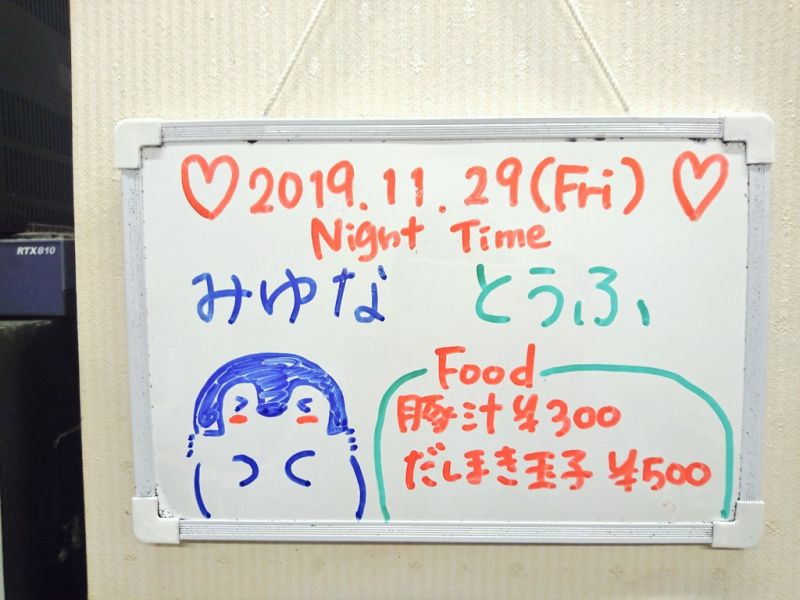 ♡2019.11.29(Fri)♡
Night Time
みゆな とうふ
Food
豚汁 ¥300
だしまき玉子 ¥500
RTX810